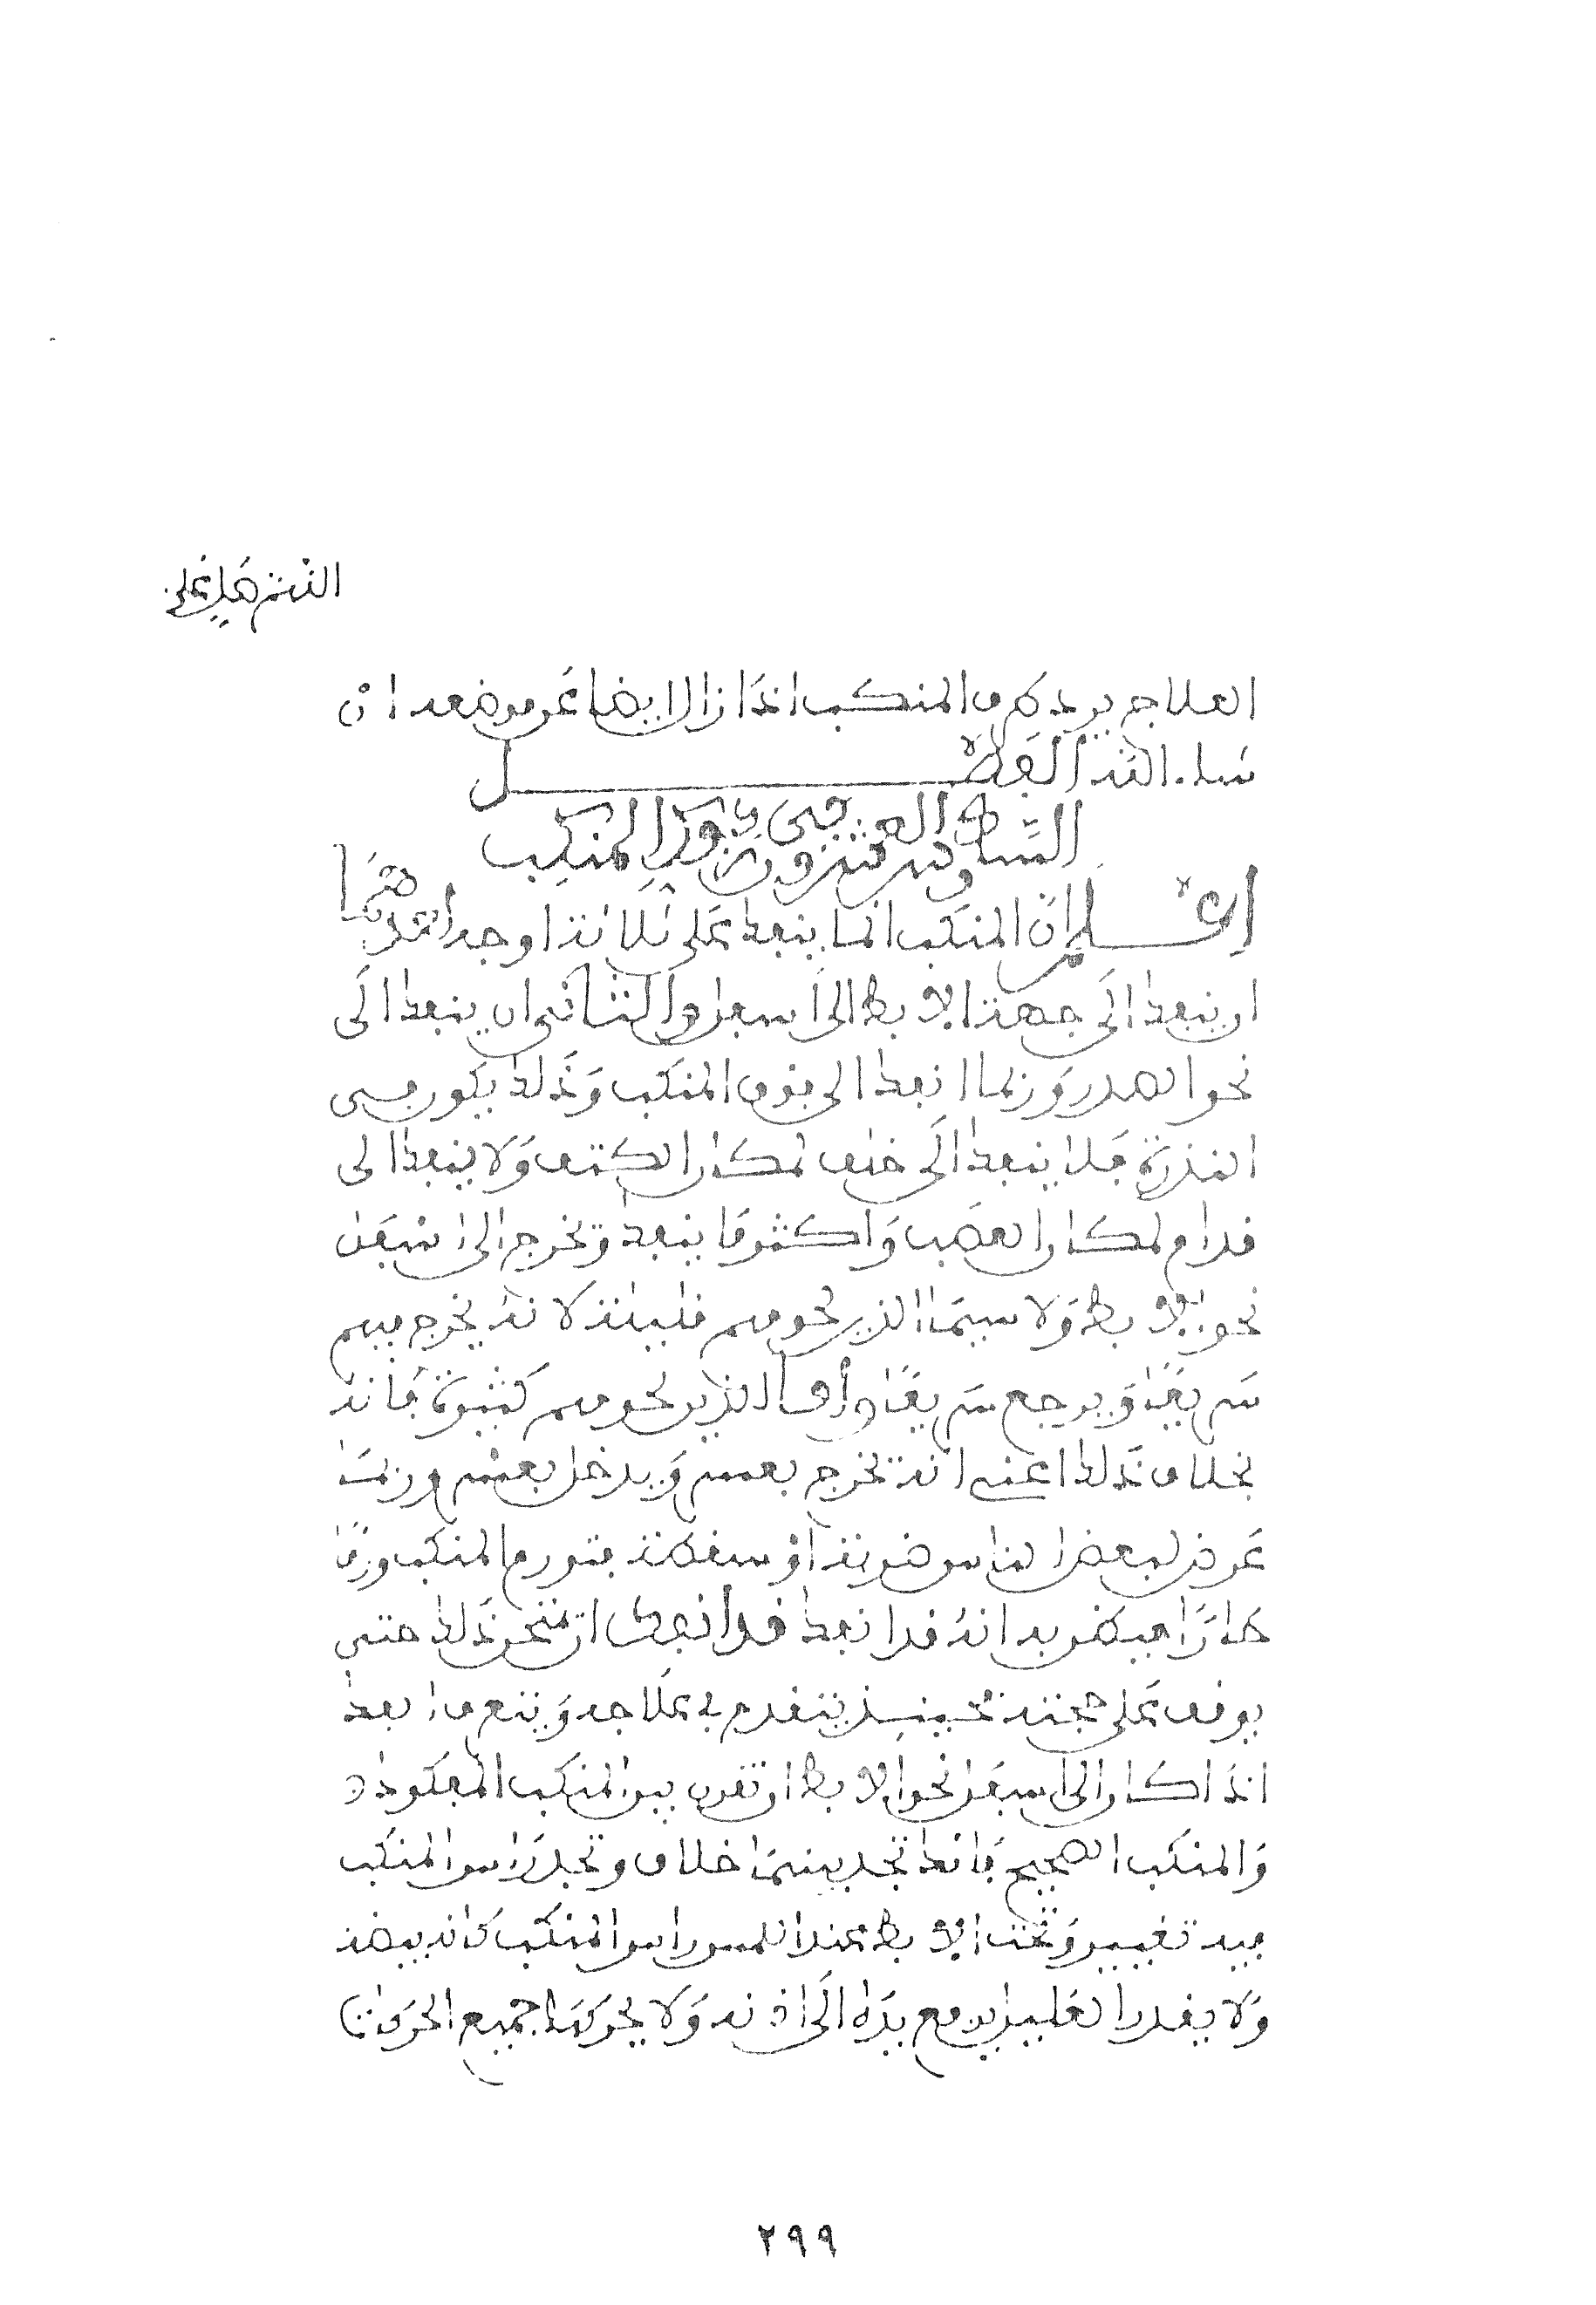 اللهم صل على
العلاج يرد طرف المنكب اذا زال ايضا عن موضعه ان
شاء الله الفصل
السادس والعشرون في فك المنكب
اعلم ان المنكب انما ينفك على ثلاثة اوجه احدها
ان ينفك الى جهة الابط الى اسفل والثاني ان ينفك الى
نحو الصدر وربما انفك الى فوق المنكب وذلك يكون في
الندرة فلا ينفك الى خلف لمكان الكتف ولا ينفك الى
قدام لمكان العصب واكثر ما ينفك ويخرج الى اسفل
نحو الابط ولا سيما الذين لحومهم قليلة لانه يخرج فيهم
سريعا ويرجع سريعا واما الذين لحومهم كثيرة فانه
بخلاف ذلك اعني انه يخرج بعسر ويدخل بعسر وربما
عرض لبعض الناس ضربة او سقطة فتورم المنكب ورما
حارا فيظن به انه قد انفك ان تمتحن ذلك حتى
يوقف على صحته فحينئذ يتقدم في علاجه ويتعرف
اذا كان الى اسفل نحو الابط ان تفرق بين المنكب المفكوك
والمنكب الصحيح فانك تجد بينهما خلاف وتجد راس المنكب
فيه تقعير وتحت الابط عند اللمس راس المنكب كانه بيضة
ولا يقدر العليل يرفع يده الى اذنه ولا يحركها جميع الحركات
٢٩٩